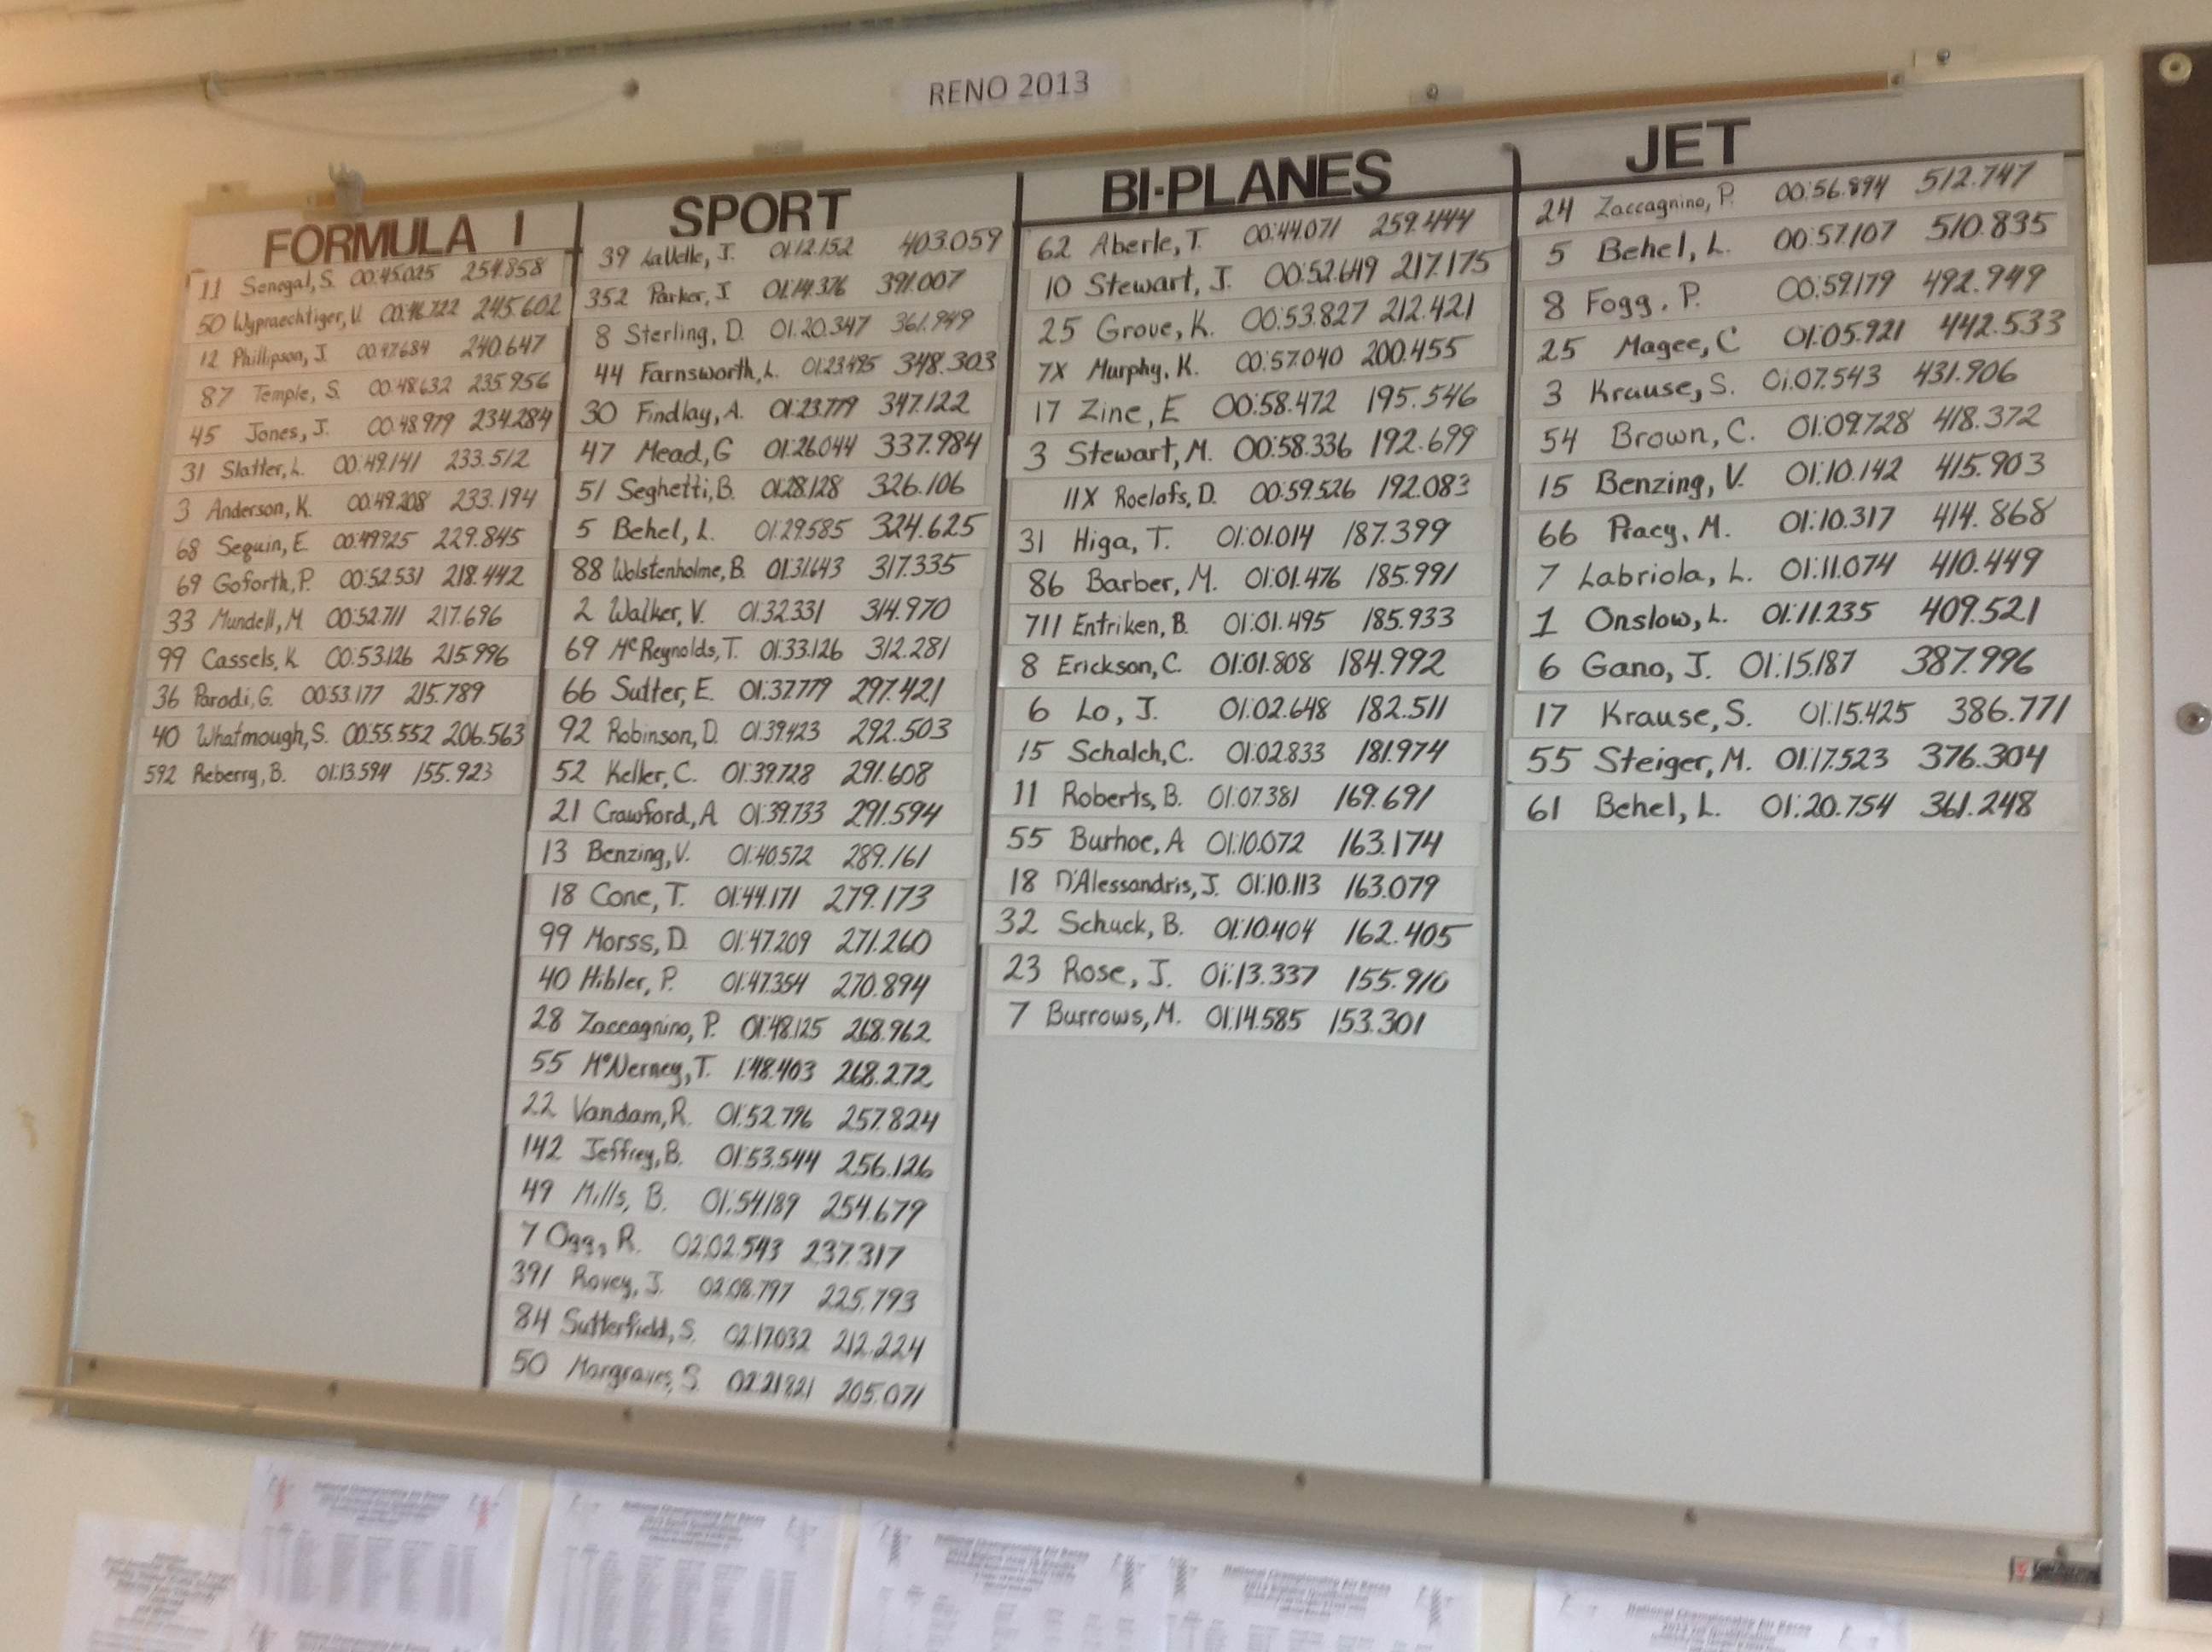 RENO 2013
FORMULA 1
11 Senegal, S. 00:45.025 254.858
50 Wypraechtiger, V. 00:46.722 245.602
12 Phillipson, J. 00:47.684 240.647
87 Temple, S. 00:48.632 235.956
45 Jones, J. 00:48.979 234.284
31 Slatter, L. 00:49.141 233.512
3 Anderson, K. 00:49.208 233.194
68 Seguin, E. 00:49.925 229.845
69 Goforth, P. 00:52.531 218.442
33 Mundell, M. 00:52.711 217.696
99 Cassels, K 00:53.126 215.996
36 Paradi, G. 00:53.177 215.789
40 Whatmough, S. 00:55.552 206.563
592 Reberry, B. 01:13.594 155.923
SPORT
39 LaVelle, J. 01:12.152 403.059
352 Parker, J 01:14.376 391.007
8 Sterling, D. 01.20.347 361.949
44 Farnsworth, L. 01:23.495 348.303
30 Findlay, A. 01:23.779 347.122
47 Mead, G 01:26.044 337.984
51 Seghetti, B. 01:28.128 326.106
5 Behel, L. 01:29.585 324.625
88 Wolstenholme, B. 01:31.643 317.335
2 Walker, V. 01:32.331 314.970
69 McReynolds, T. 01:33.126 312.281
66 Sutter, E. 01:37.779 297.421
92 Robinson, D. 01:39.423 292.503
52 Keller, C. 01:39.728 291.608
21 Crawford, A 01:39.733 291.594
13 Benzing, V. 01:40.572 289.161
18 Cone, T. 01:44.171 279.173
99 Morss, D. 01:47.209 271.260
40 Hibler, P. 01:47.354 270.894
28 Zaccagnino, P. 01:48.125 268.962
55 McNerney, T. 1:48.403 268.272
22 Vandam, R. 01:52.796 257.824
142 Jeffrey, B. 01:53.544 256.126
49 Mills, B. 01:54.189 254.679
7 Ogg, R. 02:02.543 237.317
391 Rovey, J. 02:08.797 225.793
84 Sutterfield, S. 02:17.032 212.224
50 Margraves, S. 02:21.821 205.071
BI-PLANES
62 Aberle, T. 00:44.071 259.444
10 Stewart, J. 00:52.649 217.175
25 Grove, K. 00:53.827 212.421
7X Murphy, K. 00:57.040 200.455
17 Zine, E 00:58.472 195.546
3 Stewart, M. 00:58.336 192.699
11X Roelofs, D. 00:59.526 192.083
31 Higa, T. 01:01.014 187.399
86 Barber, M. 01:01.476 185.991
711 Entriken, B. 01:01.495 185.933
8 Erickson, C. 01:01.808 184.992
6 Lo, J. 01:02.648 182.511
15 Schalch, C. 01:02.833 181.974
11 Roberts, B. 01:07.381 169.691
55 Burhoe, A 01:10.072 163.174
18 D'Alessandris, J. 01:10.113 163.079
32 Schuck, B. 01:10.404 162.405
23 Rose, J. 01:13.337 155.910
7 Burrows, M. 01:14.585 153.301
JET
24 Zaccagnino, P. 00:56.894 512.747
5 Behel, L. 00:57.107 510.835
8 Fogg, P. 00:59.179 492.949
25 Magee, C 01:05.921 442.533
3 Krause, S. 01:07.543 431.906
54 Brown, C. 01:09.728 418.372
15 Benzing, V. 01:10.142 415.903
66 Pracy, M. 01:10.317 414.868
7 Labriola, L. 01:11.074 410.449
1 Onslow, L. 01:11.235 409.521
6 Gano, J. 01:15.187 387.996
17 Krause, S. 01:15.425 386.771
55 Steiger, M. 01:17.523 376.304
61 Behel, L. 01:20.754 361.248
National Championship Air Races
National Championship Air Races
National Championship Air Races
National Championship Air Races
National Championship Air Races